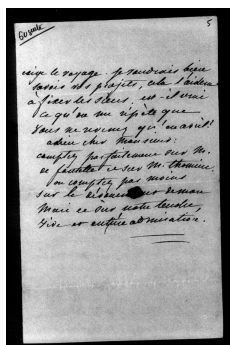 5
exige le voyage. Je voudrais bien
savoir vos projets, cela m'aidera
à fixer les miens. est-il vrai
ce qu'on me répète que
vous ne venez qu'en avril?
adieu cher Monsieur:
comptez parfaitement sur M.
de et sur M.
ou comptez pas moins
sur le dévouement de mon
Mari et sur notre tendre,
vive et entière admiration.